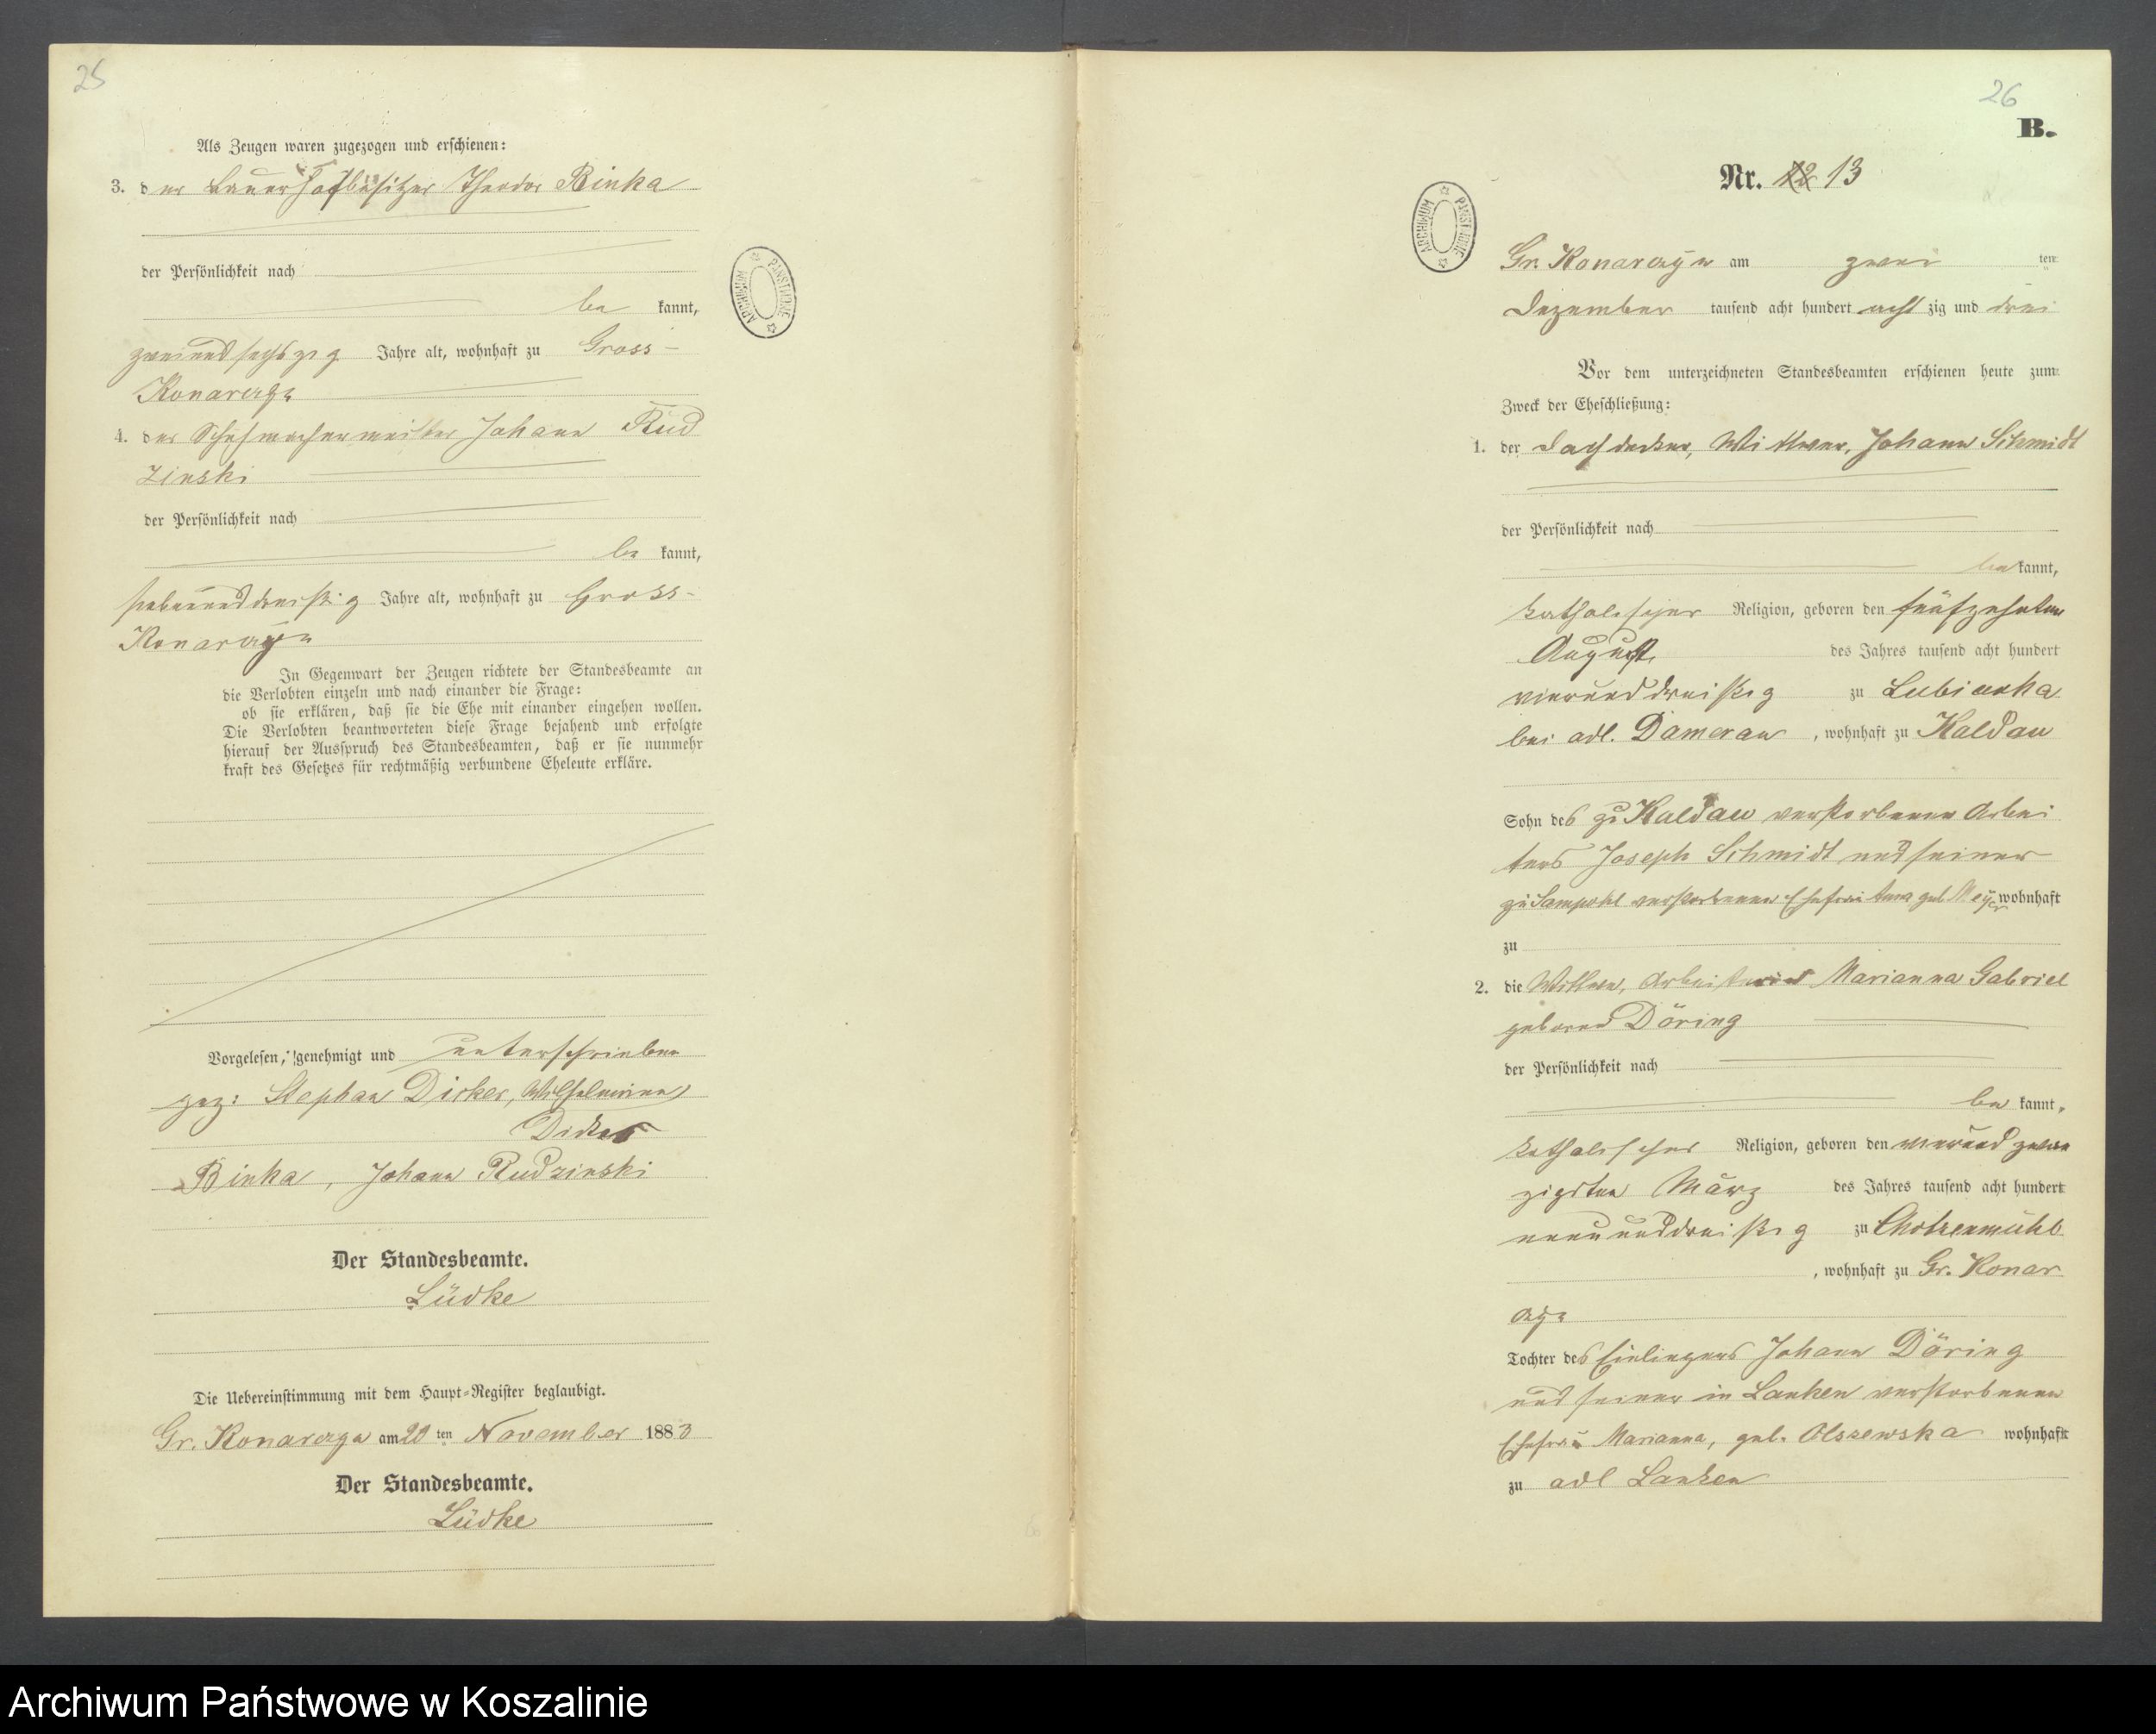 25
Als Zeugen waren zugezogen und erschienen:
3. der Bauerhofbesitzer Theodor Binka
der Persönlichkeit nach
be kannt,
zweiundsechszig Jahre alt, wohnhaft zu Gross-
Konarczyn
4. der Schuhmachermeister Johann Rud
zinski
der Persönlichkeit nach
be kannt,
siebenunddreißig Jahre alt, wohnhaft zu Gross-
Konarczyn
In Gegenwart der Zeugen richtete der Standesbeamte an
die Verlobten einzeln und nach einander die Frage:
ob sie erklären, daß sie die Ehe mit einander eingehen wollen.
Die Verlobten beantworteten diese Frage bejahend und erfolgte
hierauf der Ausspruch des Standesbeamten, daß er sie nunmehr
kraft des Gesetzes für rechtmäßig verbundene Eheleute erkläre.
Vorgelesen, genehmigt und unterschrieben
gez: Stephan Dicker, Wilhelmine
Binka, Johann Rudzinski
Der Standesbeamte.
Lüdke
Die Uebereinstimmung mit dem Haupt-Register beglaubigt.
Gr. Konarczyn am 20 ten November 1883
Der Standesbeamte.
Lüdke
ARCHIWUM PAŃSTWOWE
26
B.
Nr. 12 13
ARCHIWUM PAŃSTWOWE
Gr. Konarczyn am zwei ten
Dezember tausend acht hundert acht zig und drei
Vor dem unterzeichneten Standesbeamten erschienen heute zum
Zweck der Eheschließung:
1. der Dachdecker, Wittwer, Johann Schmidt
der Persönlichkeit nach
be kannt,
katholischer Religion, geboren den fünfzehnten
August des Jahres tausend acht hundert
vierunddreißig zu Lubianka
bei adl. Damerau, wohnhaft zu Kaldau
Sohn des zu Kaldau verstorbenen Arbei
ters Joseph Schmidt und seiner
zu Sampohl verstorbenen Ehefrau Anna geb. Meyer wohnhaft
zu
2. die Wittwe, Arbeiterin Marianna Gabriel
geborene Döring
der Persönlichkeit nach
be kannt,
katholischer Religion, geboren den vierundzwan
zigsten März des Jahres tausend acht hundert
neununddreißig zu Chotzenmühl
, wohnhaft zu Gr. Konar
czyn
Tochter des Einliegers Johann Döring
und seiner in Lanken verstorbenen
Ehefrau Marianna, geb. Olszewska wohnhaft
zu adl Lanken
Archiwum Państwowe w Koszalinie